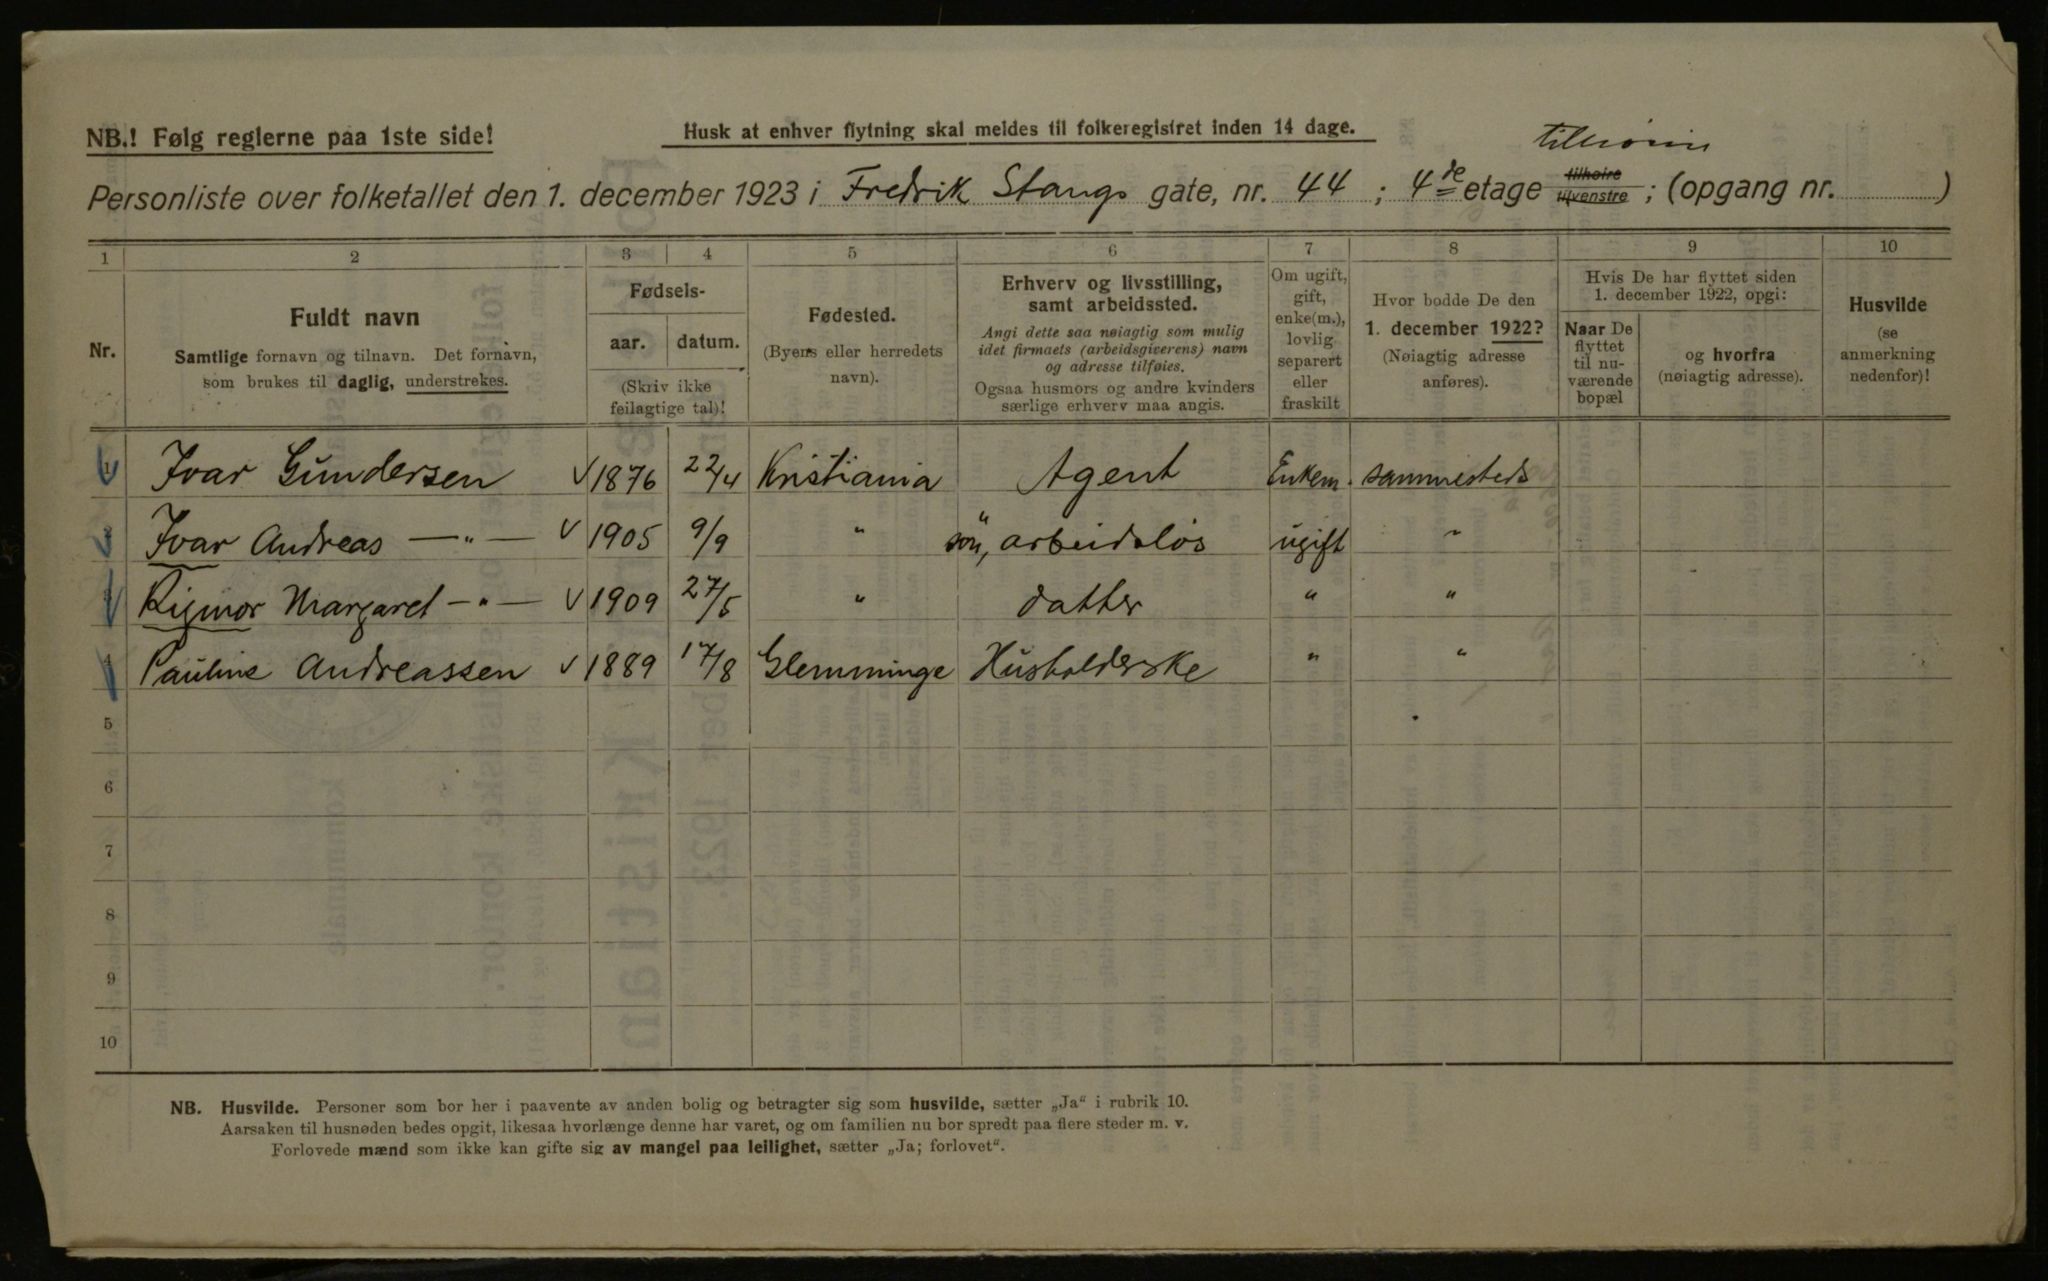 NB.! Følg reglerne paa 1ste side!
Husk at enhver flytning skal meldes til folkeregistret inden 14 dage.
Personliste over folketallet den 1. december 1923 i Fredrik Stangs gate, nr. 44 ; 4de etage tilhøire tilvenstre ; (opgang nr. )
1 2 3 4 5 6 7 8 9 10
Nr.
Fuldt navn
Samtlige fornavn og tilnavn. Det fornavn,
som brukes til daglig, understrekes.
Fødsels-
aar. datum.
(Skriv ikke
feilagtige tal)!
Fødested.
(Byens eller herredets
navn).
Erhverv og livsstilling,
samt arbeidssted.
Angi dette saa nøiagtig som mulig
idet firmaets (arbeidsgiverens) navn
og adresse tilføies.
Ogsaa husmors og andre kvinders
særlige erhverv maa angis.
Om ugift,
gift,
enke(m.),
lovlig
separert
eller
fraskilt
Hvor bodde De den
1. december 1922?
(Nøiagtig adresse
anføres).
Hvis De har flyttet siden
1. december 1922, opgi:
Naar De
flyttet
til nu-
værende
bopæl
og hvorfra
(nøiagtig adresse).
Husvilde
(se
anmerkning
nedenfor)!
1 Ivar Gundersen 1876 22/4 Kristiania Agent Enkem. sammesteds
2 Ivar Andreas —"— 1905 9/9 " søn, arbeidsløs ugift "
3 Rigmor Margaret —"— 1909 27/5 " datter " "
4 Pauline Andreassen 1889 17/8 Glemminge Husholderske " "
5
6
7
8
9
10
NB. Husvilde. Personer som bor her i paavente av anden bolig og betragter sig som husvilde, sætter „Ja“ i rubrik 10.
Aarsaken til husnøden bedes opgit, likesaa hvorlænge denne har varet, og om familien nu bor spredt paa flere steder m. v.
Forlovede mænd som ikke kan gifte sig av mangel paa leilighet, sætter „Ja; forlovet“.